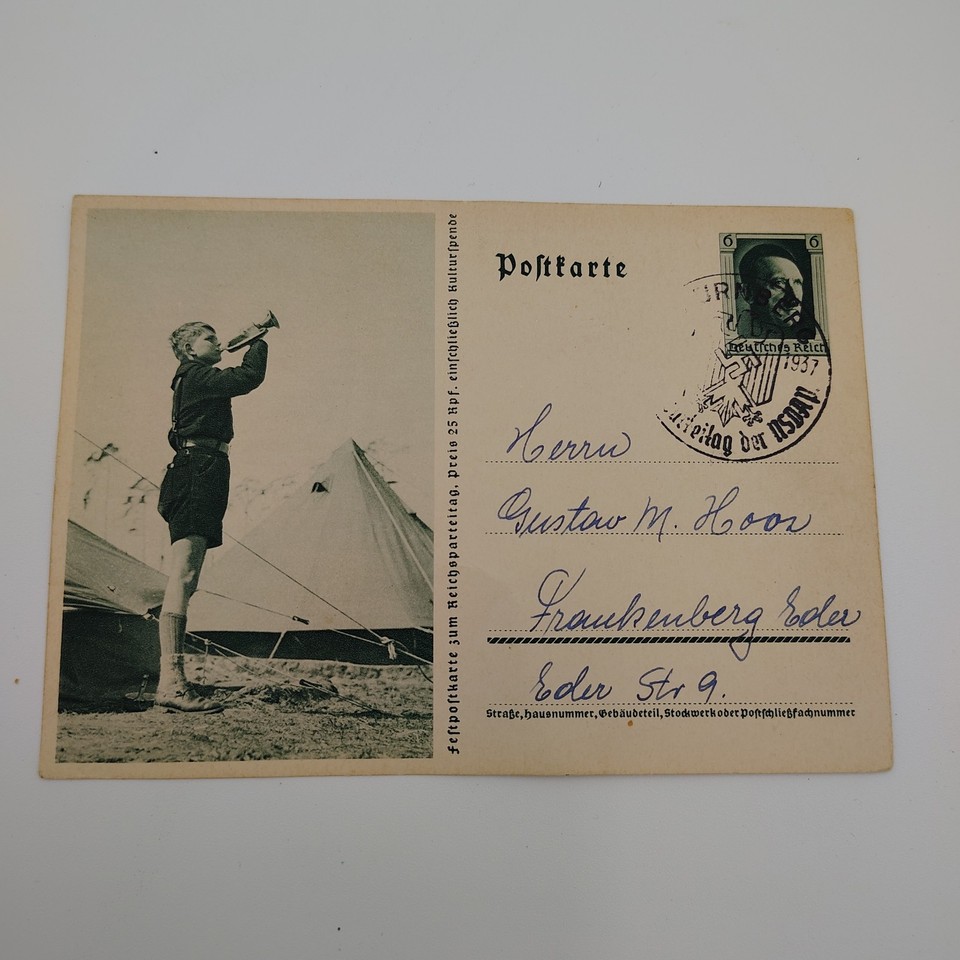 Festpostkarte zum Reichsparteitag, Preis 25 Rpf. einschließlich Kulturspende
Postkarte
6 6
Deutsches Reich
1937
Parteitag der NSDAP
Herrn
Gustav M. Hoos
Frankenberg Eder
Eder Str 9.
Straße, Hausnummer, Gebäudeteil, Stockwerk oder Postschließfachnummer